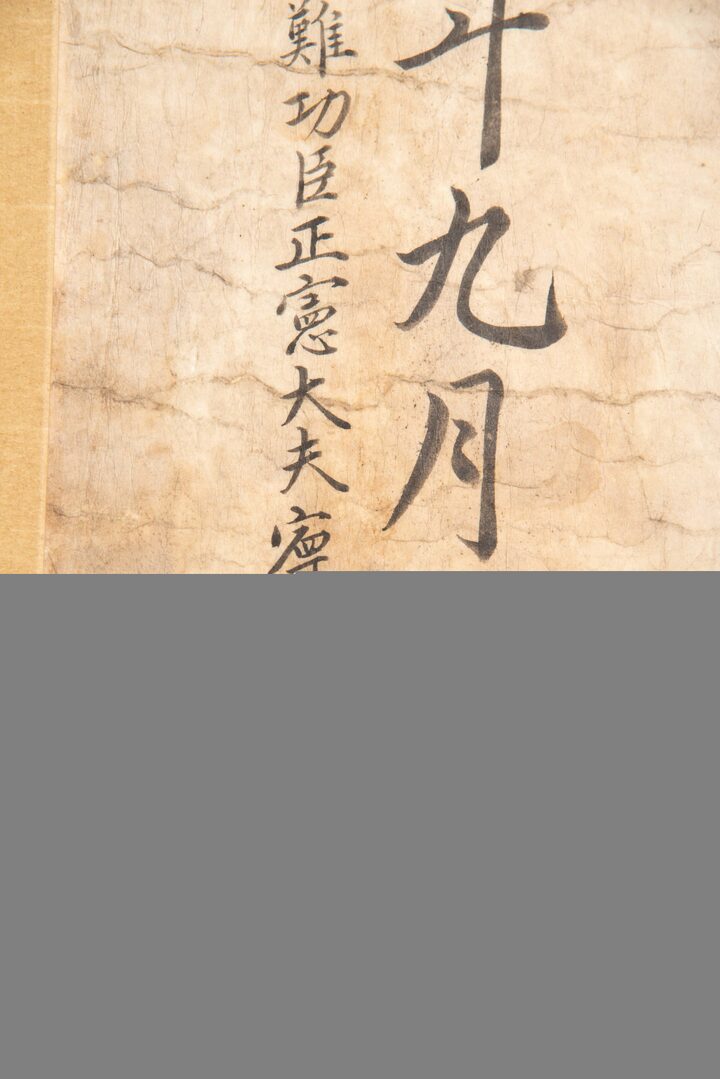 九月
難功臣正憲大夫